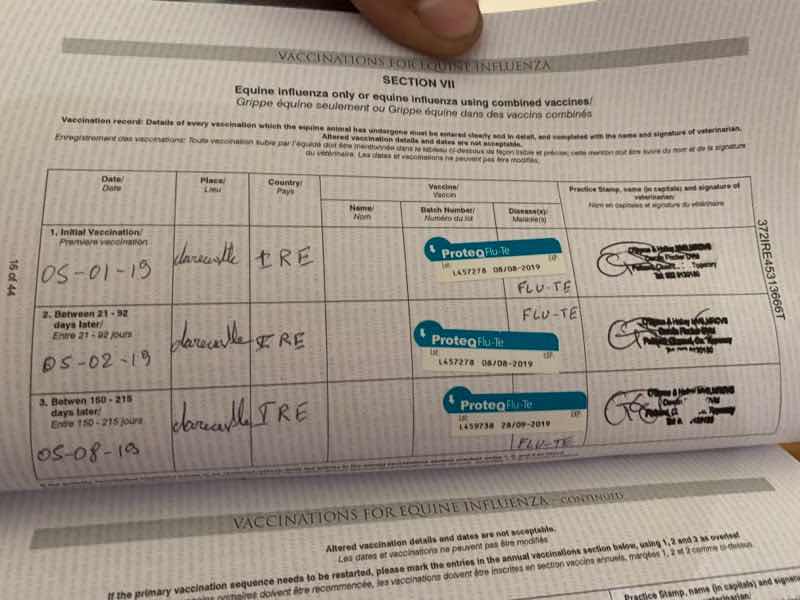 VACCINATIONS FOR EQUINE INFLUENZA
SECTION VII
Equine influenza only or equine influenza using combined vaccines/
Grippe équine seulement ou Grippe équine dans des vaccins combinés
Vaccination record: Details of every vaccination which the equine animal has undergone must be entered clearly and in detail, and completed with the name and signature of veterinarian.
Altered vaccination details and dates are not acceptable.
Enregistrement des vaccinations: Toute vaccination subie par l'équidé doit être mentionnée dans le tableau ci-dessous de façon lisible et précise; cette mention doit être suivie du nom et de la signature
du vétérinaire. Les dates et vaccinations ne peuvent pas être modifiés.
Date/
Date
Place/
Lieu
Country/
Pays
Vaccine/
Vaccin
Practice Stamp, name (in capitals) and signature of
veterinarian:/
Nom en capitales et signature du vétérinaire
Name/
Nom
Batch Number/
Numéro du lot
Disease(s)/
Maladie(s)
1. Initial Vaccination/
Premiere vaccination
05-01-19
clarecastle
IRE
ProteqFlu-Te
Lot
EXP.
L457278 08/08-2019
FLU-TE
2. Between 21 - 92
days later/
Entre 21 - 92 jours
05-02-19
clarecastle
IRE
FLU-TE
ProteqFlu-Te
Lot
EXP.
L457278 08/08-2019
3. Betwen 150 - 215
days later/
Entre 150 - 215 jours
05-08-19
clarecastle
IRE
ProteqFlu-Te
Lot
EXP.
L459738 28/09-2019
FLU-TE
16 of 44
372IRE45313666T
VACCINATIONS FOR EQUINE INFLUENZA - CONTINUED
Altered vaccination details and dates are not acceptable.
Les dates et vaccinations ne peuvent pas être modifiés
If the primary vaccination sequence needs to be restarted, please mark the entries in the annual vaccinations section below, using 1, 2 and 3 as overleaf
primaires doivent être recommencée, les vaccinations doivent être inscrites en section vaccins annuels, marqées 1, 2 et 3 comme ci-dessus.
Practice Stamp, name (in capitals) and